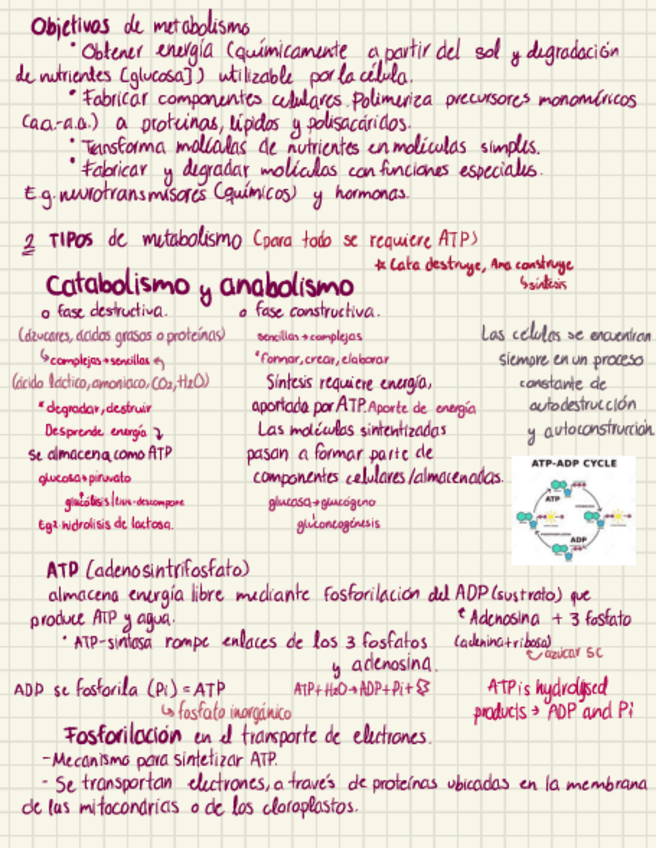 Objetivos de metabolismo
• Obtener energía (químicamente a partir del sol y degradación
de nutrientes [glucosa]) utilizable por la célula.
• Fabricar componentes celulares. Polimeriza precursores monoméricos
(a.a.-a.a.) a proteínas, lípidos y polisacáridos.
• Transforma moléculas de nutrientes en moléculas simples.
• Fabricar y degradar moléculas con funciones especiales.
E.g. neurotransmisores (químicos) y hormonas.
2 TIPOS de metabolismo (para todo se requiere ATP)
* Cata destruye, Ana construye
↳ síntesis
Catabolismo y anabolismo
o fase destructiva. o fase constructiva.
(azúcares, ácidos grasos o proteínas) sencillas → complejas Las células se encuentran
↳ complejas → sencillas * formar, crear, elaborar siempre en un proceso
(ácido láctico, amoniaco, CO2, H2O) Síntesis requiere energía, constante de
* degradar, destruir aportada por ATP. Aporte de energía autodestrucción
Desprende energía Las moléculas sintentizadas y autoconstrucción
se almacena como ATP pasan a formar parte de
glucosa → piruvato componentes celulares/almacenadas.
glucólisis/ descompone glucosa → glucógeno
Eg2 hidrolisis de lactosa. gluconeogénesis
ATP-ADP CYCLE
ATP
ADP
ATP (adenosintrifosfato)
almacena energía libre mediante fosforilación del ADP (sustrato) que
produce ATP y agua. Adenosina + 3 fosfato
• ATP-sintasa rompe enlaces de los 3 fosfatos (adenina+ribosa)
y adenosina. azúcar 5C
ADP se fosforila (Pi) = ATP ATP + H2O → ADP + Pi + ATP is hydrolysed
↳ fosfato inorgánico products → ADP and Pi
Fosforilación en el transporte de electrones.
- Mecanismo para sintetizar ATP.
- Se transportan electrones, a través de proteínas ubicadas en la membrana
de las mitocondrias o de los cloroplastos.